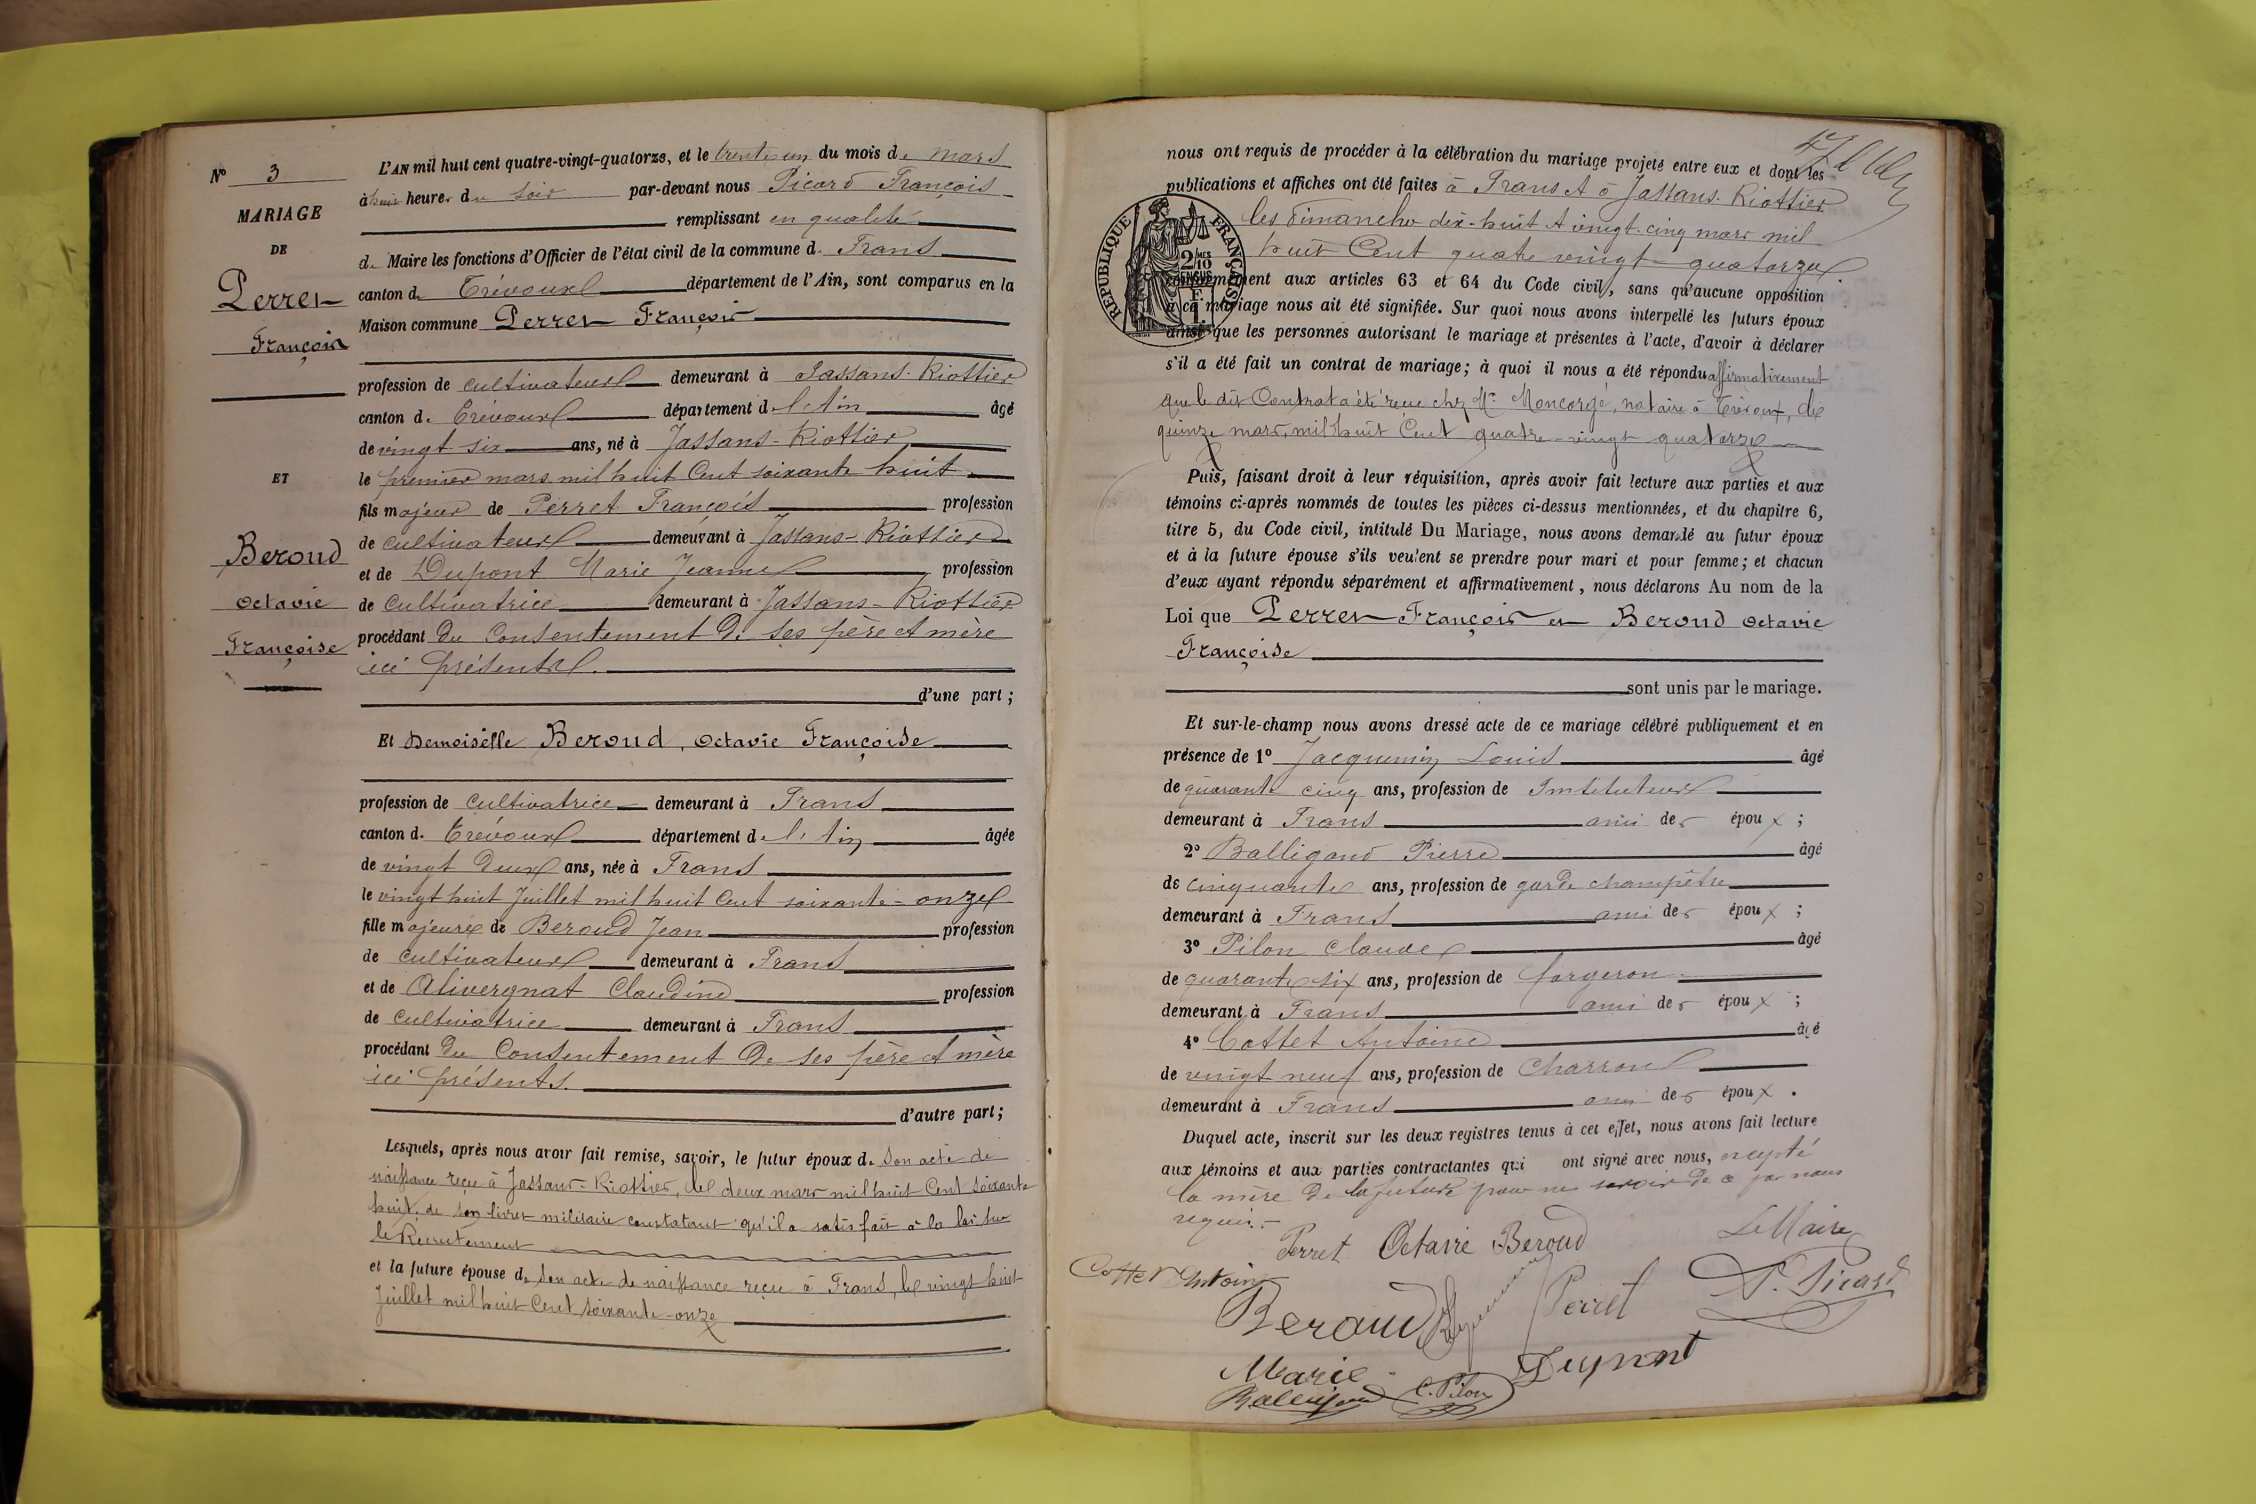 N° 3
MARIAGE
DE
Perret
François
ET
Beroud
Octavie
Françoise
L'AN mil huit cent quatre-vingt-quatorze, et le trente un du mois de mars
à huit heures du soir par-devant nous Picard François
remplissant en qualité
de Maire les fonctions d'Officier de l'état civil de la commune de Frans
canton de Trévoux département de l'Ain, sont comparus en la
Maison commune Perret François
profession de cultivateur demeurant à Jassans-Riottier
canton de Trévoux département de l'Ain âgé
de vingt six ans, né à Jassans-Riottier
le premier mars mil huit Cent soixante huit
fils majeur de Perret François profession
de cultivateur demeurant à Jassans-Riottier
et de Dupont Marie Jeanne profession
de cultivatrice demeurant à Jassans-Riottier
procédant du Consentement de ses père et mère
ici présents.
d'une part ;
Et Demoiselle Beroud, Octavie Françoise
profession de cultivatrice demeurant à Frans
canton de Trévoux département de l'Ain âgée
de vingt deux ans, née à Frans
le vingt huit Juillet mil huit Cent soixante-onze
fille majeure de Beroud Jean profession
de cultivateur demeurant à Frans
et de Alivergnat Claudine profession
de cultivatrice demeurant à Frans
procédant du Consentement de ses père et mère
ici présents.
d'autre part ;
Lesquels, après nous avoir fait remise, savoir, le futur époux de son acte de
naissance reçu à Jassans-Riottier, le deux mars mil huit Cent soixante
huit, de son livret militaire constatant qu'il a satisfait à la loi sur
le Recrutement
et la future épouse de son acte de naissance reçu à Frans, le vingt huit
Juillet mil huit Cent soixante-onze
nous ont requis de procéder à la célébration du mariage projeté entre eux et dont les
publications et affiches ont été faites à Frans et à Jassans-Riottier
les dimanche dix-huit et vingt-cinq mars mil
huit Cent quatre vingt-quatorze
REPUBLIQUE FRANÇAISE
2/10
conformément aux articles 63 et 64 du Code civil, sans qu'aucune opposition
à ce mariage nous ait été signifiée. Sur quoi nous avons interpellé les futurs époux
ainsi que les personnes autorisant le mariage et présentes à l'acte, d'avoir à déclarer
s'il a été fait un contrat de mariage ; à quoi il nous a été répondu affirmativement
que le dit Contrat a été reçu chez Me Moncorgé, notaire à Trévoux, le
quinze mars, mil huit Cent quatre-vingt quatorze
Puis, faisant droit à leur réquisition, après avoir fait lecture aux parties et aux
témoins ci-après nommés de toutes les pièces ci-dessus mentionnées, et du chapitre 6,
titre 5, du Code civil, intitulé Du Mariage, nous avons demandé au futur époux
et à la future épouse s'ils veulent se prendre pour mari et pour femme ; et chacun
d'eux ayant répondu séparément et affirmativement, nous déclarons Au nom de la
Loi que Perret François et Beroud Octavie
Françoise
sont unis par le mariage.
Et sur-le-champ nous avons dressé acte de ce mariage célébré publiquement et en
présence de 1° Jacquemin Louis âgé
de quarante cinq ans, profession de Instituteur
demeurant à Frans ami des époux ;
2° Balligand Pierre âgé
de cinquante ans, profession de garde champêtre
demeurant à Frans ami des époux ;
3° Pilon Claude âgé
de quarante six ans, profession de forgeron
demeurant à Frans ami des époux ;
4° Cottet Antoine âgé
de vingt neuf ans, profession de Charron
demeurant à Frans ami des époux .
Duquel acte, inscrit sur les deux registres tenus à cet effet, nous avons fait lecture
aux témoins et aux parties contractantes qui ont signé avec nous, excepté
la mère de la future pour ne savoir de ce par nous
requis.
Perret Octavie Beroud Le Maire
Cottet Antoine Perret P. Picard
Beroud Jacquemin
Marie Dupont
Balligand C. Pilon